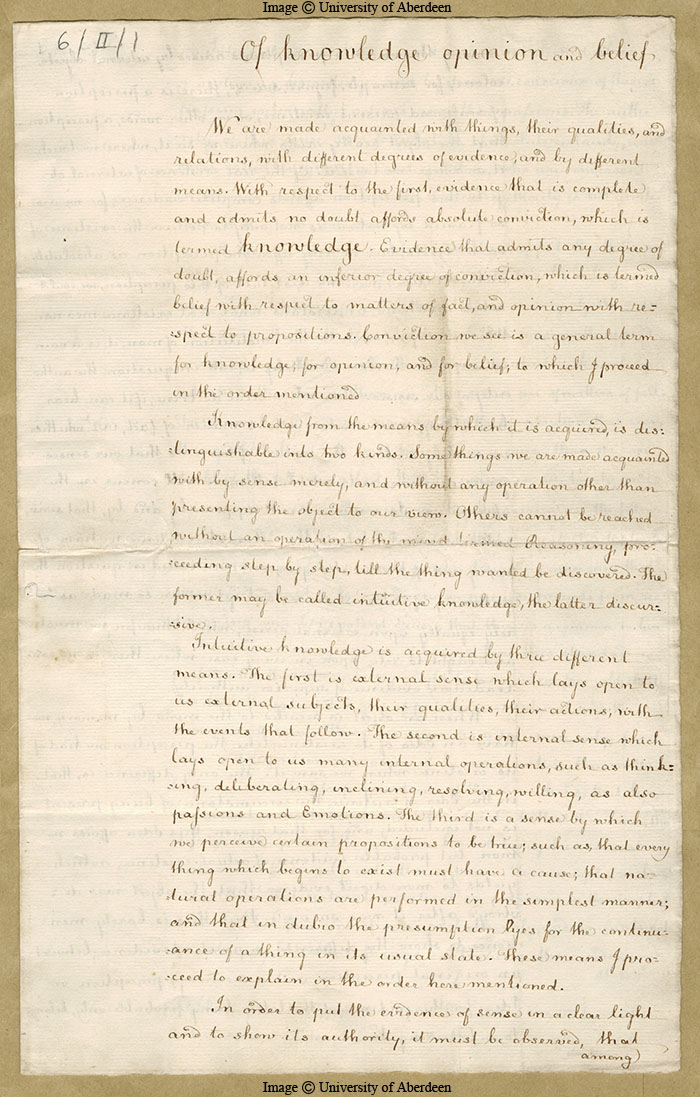 Image © University of Aberdeen
6/II/1
Of knowledge opinion and belief
We are made acquainted with things, their qualities, and
relations, with different degrees of evidence, and by different
means. With respect to the first, evidence that is complete
and admits no doubt affords absolute conviction, which is
termed knowledge. Evidence that admits any degree of
doubt, affords an inferior degree of conviction, which is termed
belief with respect to matters of fact, and opinion with re-
:spect to propositions. Conviction we see is a general term
for knowledge, for opinion, and for belief; to which I proceed
in the order mentioned
Knowledge from the means by which it is acquired, is dis:
:tinguishable into two kinds. Some things we are made acquainted
with by sense merely, and without any operation other than
presenting the object to our view. Others cannot be reached
without an operation of the mind termed Reasoning, pro:
:ceeding step by step, till the thing wanted be discovered. The
former may be called intuitive knowledge, the latter discur:
:sive.
Intuitive knowledge is acquired by three different
means. The first is external sense which lays open to
us external subjects, their qualities, their actions, with
the events that follow. The second is internal sense which
lays open to us many internal operations, such as think:
:ing, deliberating, inclining, resolving, willing, as also
passions and Emotions. The third is a sense by which
we perceive certain propositions to be true; such as, that every
thing which begins to exist must have a cause; that na:
:tural operations are performed in the simplest manner;
and that in dubio the presumption lyes for the continu:
:ance of a thing in its usual state. These means I pro:
:ceed to explain in the order here mentioned.
In order to put the evidence of sense in a clear light
and to show its authority, it must be observed, that
among
Image © University of Aberdeen